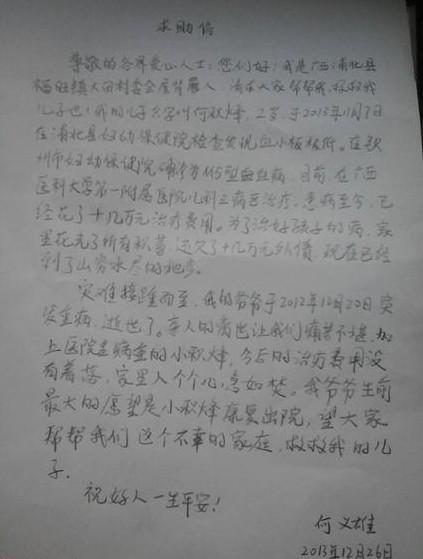 求助信
尊敬的各界爱心人士:您们好!我是广西浦北县
福旺镇大田村委会屋背麓人 请求大家帮帮我,救救我
儿子吧!我的儿子名字叫何秋烽,2岁,于2013年11月7日
在浦北县妇幼保健院检查发现血小板极低。在钦
州市妇幼保健院确诊为M5型白血病,目前,在广西
医科大学第一附属医院儿科三病区治疗,患病至今,已
经花了十几万元治疗费用。为了治好孩子的病,家
里花光了所有积蓄,还欠了十几万元外债,现在已经
到了山穷水尽的地步。
灾难接踵而至,我的爷爷于2012年12月20日突
发重病,逝世了。亲人的离世让我们痛苦不堪,加
上医院里病重的小秋烽,今后的治疗费用没
有着落,家里人个个心急如焚。我爷爷生前
最大的愿望是小秋烽康复出院,望大家
帮帮我们这个不幸的家庭,救救我的儿
子.
祝好人一生平安!
何义雄
2013年12月26日